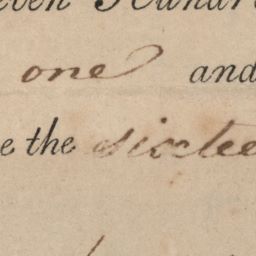 even Hundre
one and
e the sixtee